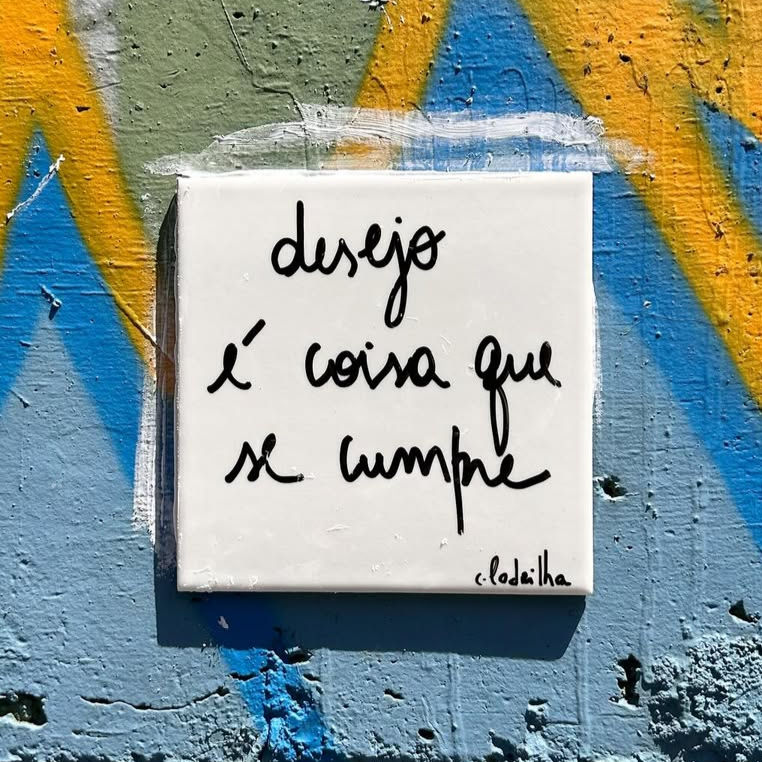 desejo
é coisa que
se cumpre
c. ladrilha